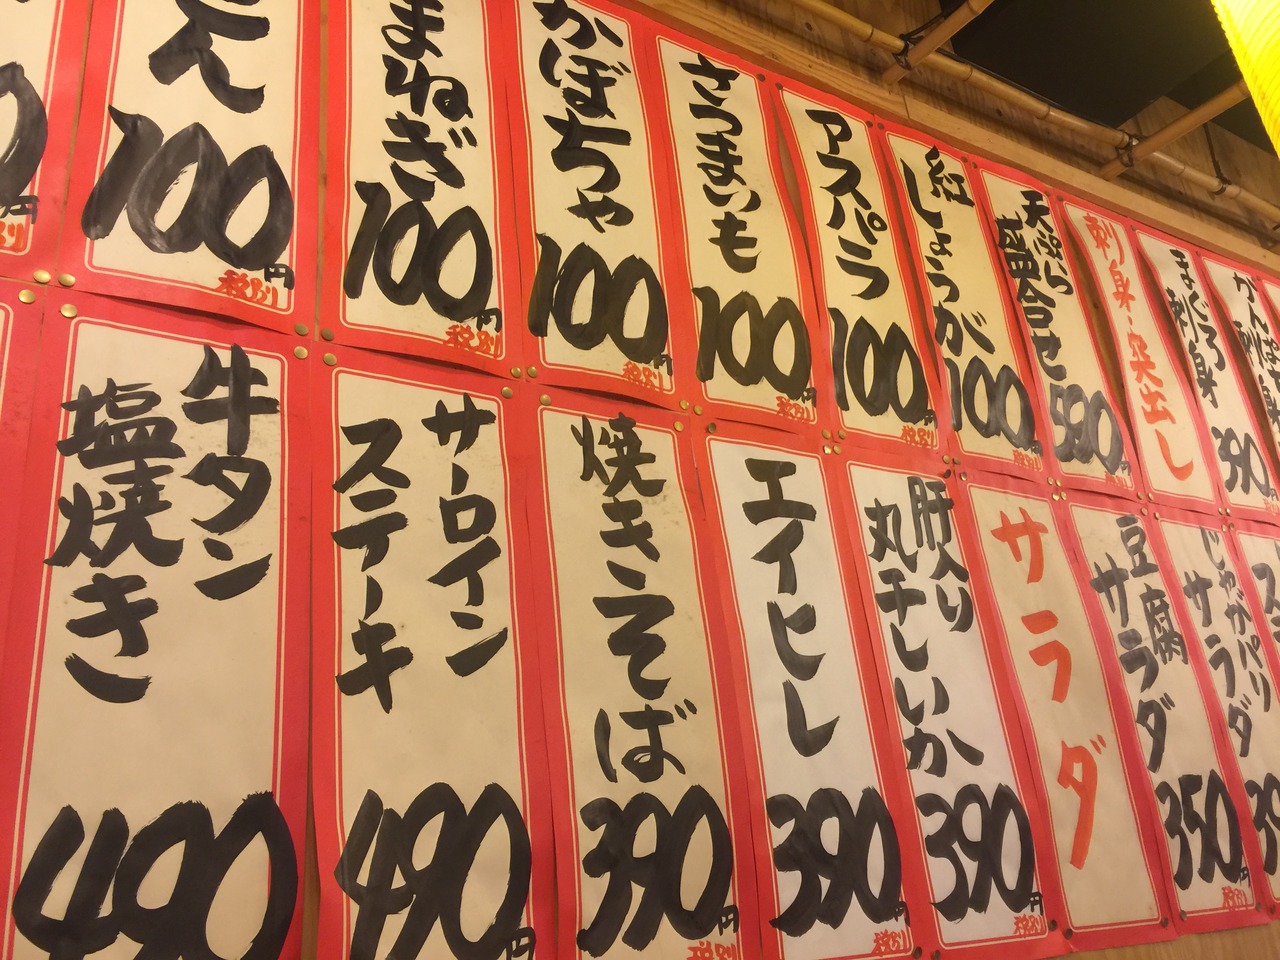 100円
税別
まねぎ
100円
税別
かぼちゃ
100円
税別
さつまいも
100円
税別
アスパラ
100円
税別
紅しょうが
100円
税別
天ぷら
盛合せ
590円
刺身・突出し
まぐろ
刺身
390円
牛タン
塩焼き
490
サーロイン
ステーキ
490円
焼きそば
390円
税別
エイヒレ
390円
税別
肝入り
丸干しいか
390円
税別
サラダ
豆腐
サラダ
350円
税別
じゃがパリ
サラダ